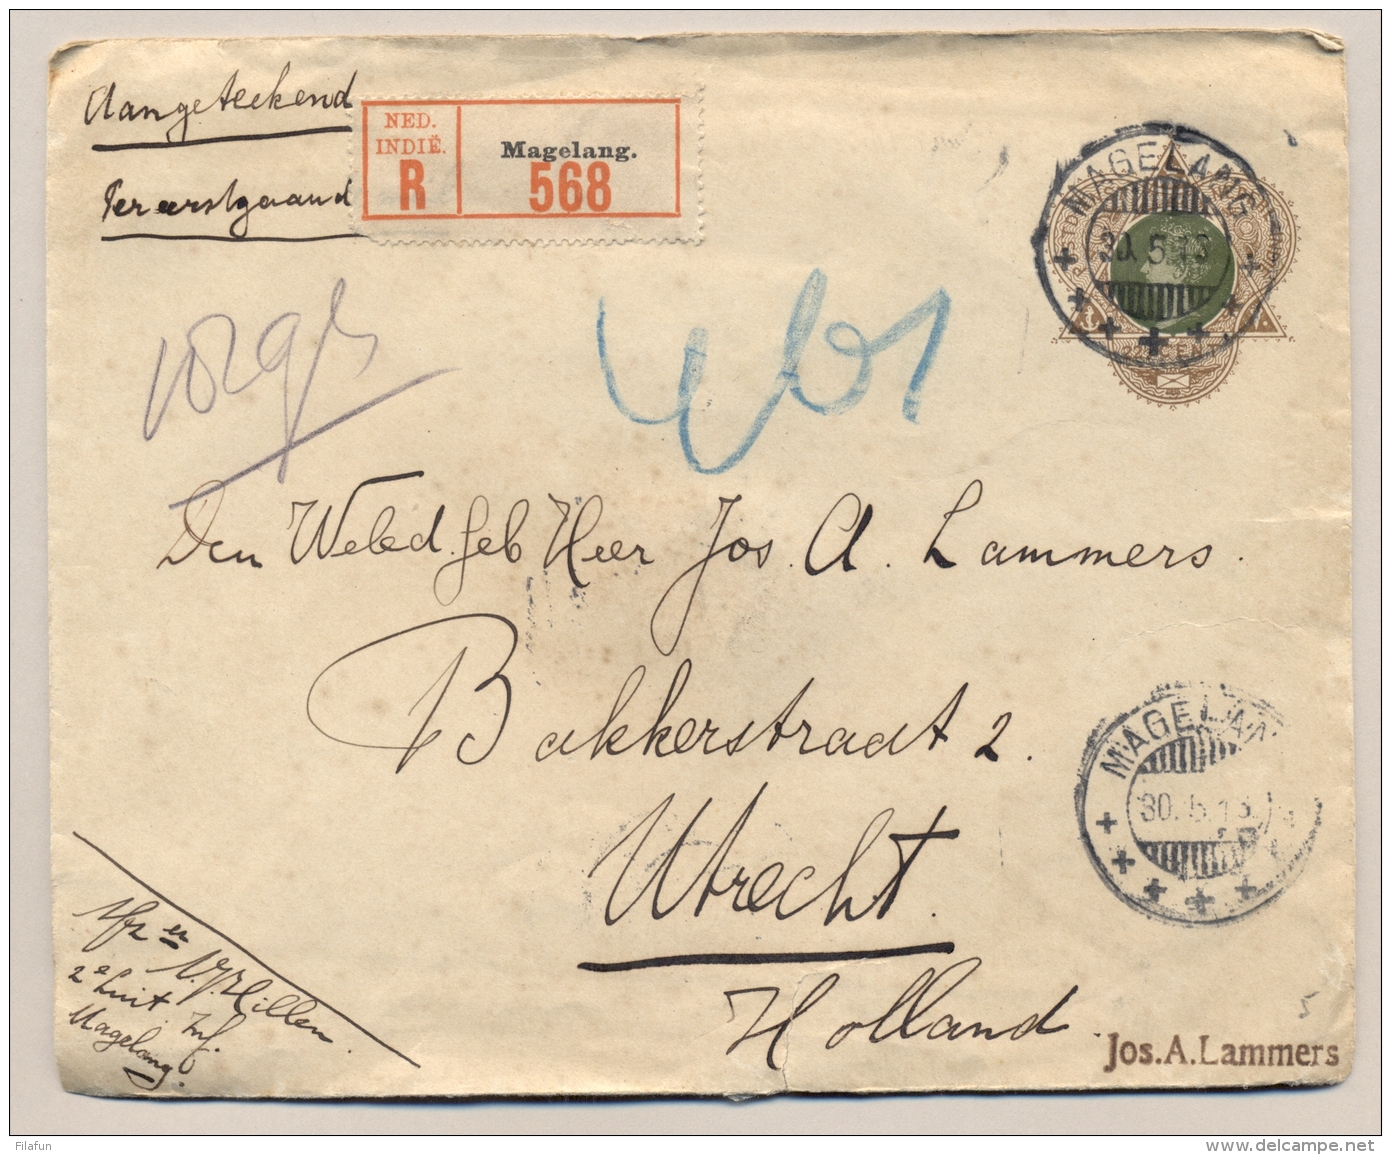 Aangeteekend
NED.
INDIË.
R
Magelang.
568
MAGELANG
30.5.13
CENT
Den WelEd. Geb Heer Jos. A. Lammers.
Bakkerstraat 2.
Utrecht.
Holland
MAGELAN
30.5.13.
Afz er
2e Luit Inf.
Magelang.
Jos.A.Lammers
5
Filafun
www.delcampe.net